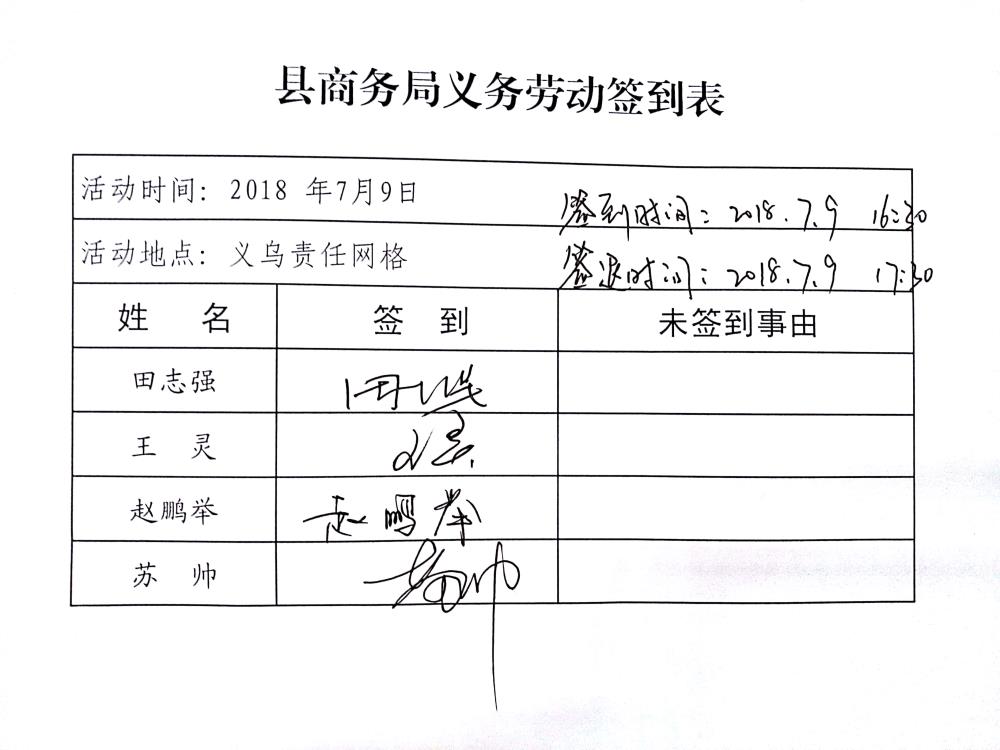 县商务局义务劳动签到表
活动时间：2018 年7月9日
签到时间：2018.7.9 16:30
活动地点：义乌责任网格
签退时间：2018.7.9 17:30
姓 名 签 到 未签到事由
田志强
王 灵
赵鹏举 赵鹏举
苏 帅